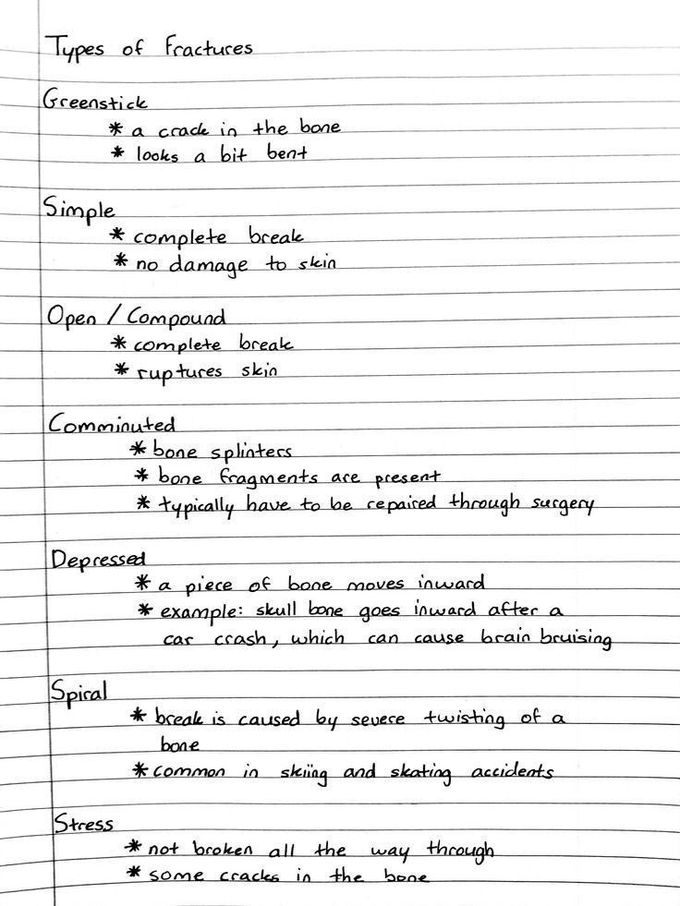 Types of Fractures
Greenstick
* a crack in the bone
* looks a bit bent
Simple
* complete break
* no damage to skin
Open / Compound
* complete break
* ruptures skin
Comminuted
* bone splinters
* bone fragments are present
* typically have to be repaired through surgery
Depressed
* a piece of bone moves inward
* example: skull bone goes inward after a
car crash, which can cause brain bruising
Spiral
* break is caused by severe twisting of a
bone
* common in skiing and skating accidents
Stress
* not broken all the way through
* some cracks in the bone